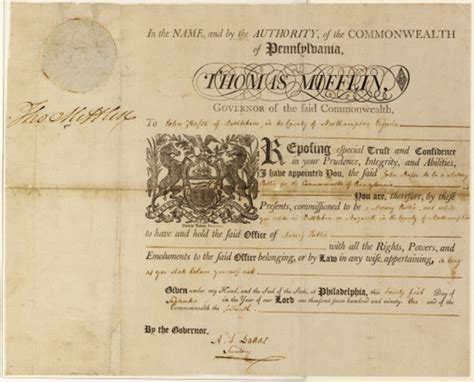 In the NAME, and by the AUTHORITY, of the COMMONWEALTH
of Pennsylvania,
THOMAS MIFFLIN,
GOVERNOR of the said Commonwealth,
Tho Mifflin
To John Hasse of Bethlehem, in the County of Northampton Esquire
REposing especial Trust and Confidence
in your Prudence, Integrity, and Abilities,
I have appointed You, the said John Hasse to be a Notary
Public for the Commonwealth of Pennsylvania
You are, therefore, by these
Presents, commissioned to be a Notary Public and
reside in Bethlehem or Nazareth in the County of Northampton
to have and hold the said Office of Notary Public
with all the Rights, Powers, and
Emoluments to the said Office belonging, or by Law in any wise, appertaining, so long
as you shall behave yourself well
GIVEN under my Hand, and the Seal of the State, at Philadelphia, this twenty first Day of
September in the Year of our Lord one thousand seven hundred and ninety One and of the
Commonwealth the sixteenth
By the Governor,
A. J. Dallas
Secretary